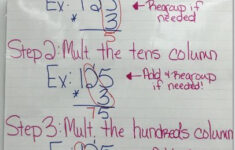 Ex: 125 Regroup if
* 3 needed!
5
Step 2: Mult. the tens column
Ex: 125 Add & Regroup if
* 3 needed!
75
Step 3: Mult. the hundreds column
Ex: 125